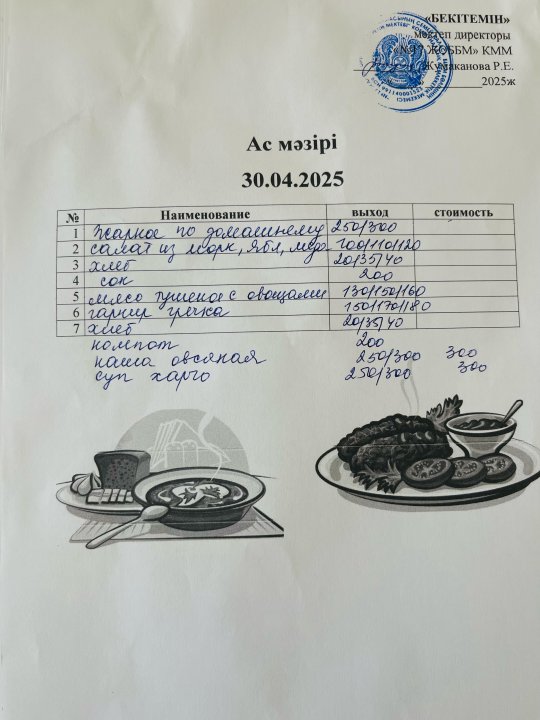 «БЕКІТЕМІН»
мектеп директоры
ЖОББМ» КММ
Жумаканова Р.Е.
2025ж
Ас мәзірі
30.04.2025
№ Наименование выход стоимость
1 Жаркое по домашнему 250/300
2 салат из морк, ябл, 100/110/120
3 хлеб 20/35/40
4 сок 200
5 мясо тушеное с овощами 130/150/160
6 гарнир гречка 150/170/180
7 хлеб 20/35/40
компот 200
каша овсяная 250/300 300
суп харчо 250/300 300